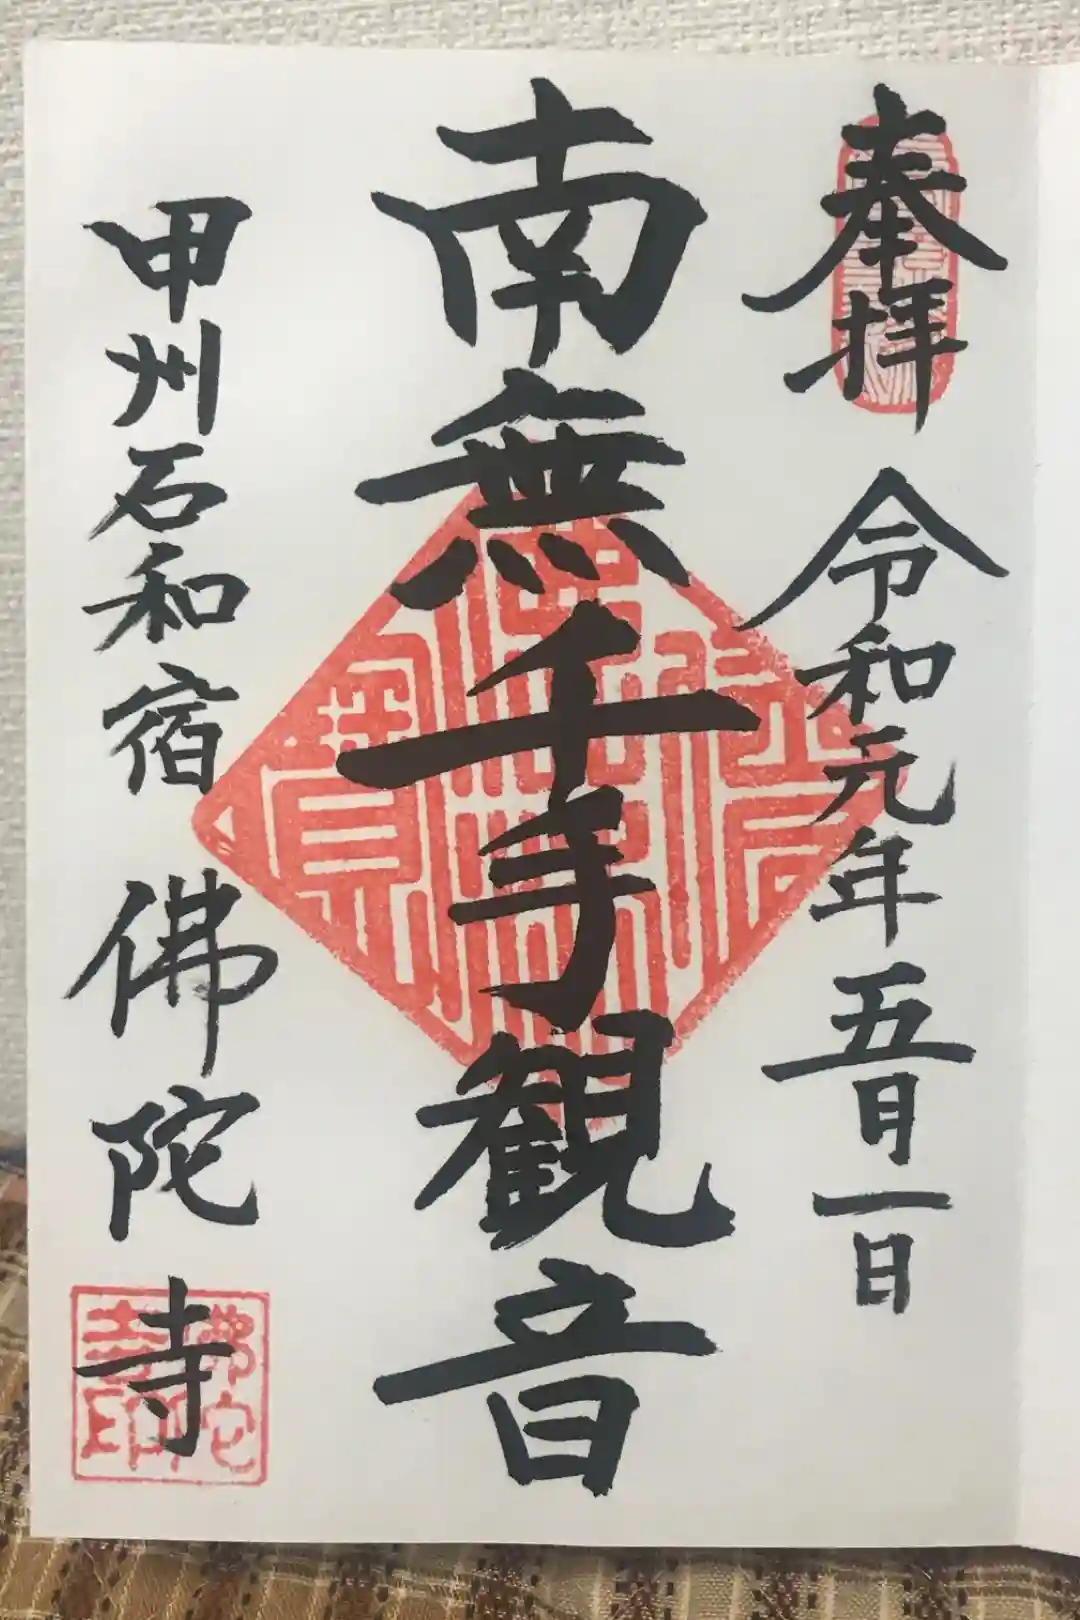 奉拝 令和元年 五月一日
南無千手観音
甲州石和宿 佛陀寺
佛陀寺印